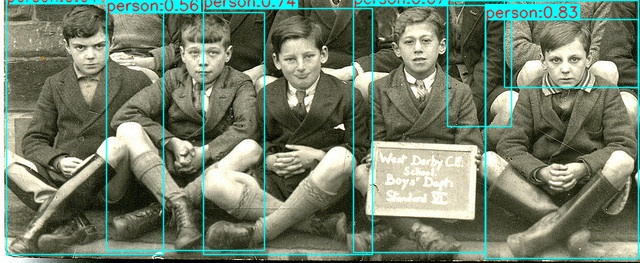 person:0.56
person:0.74
person:0.83
West Derby C.E.
School
Boys' Dept.
Standard VI